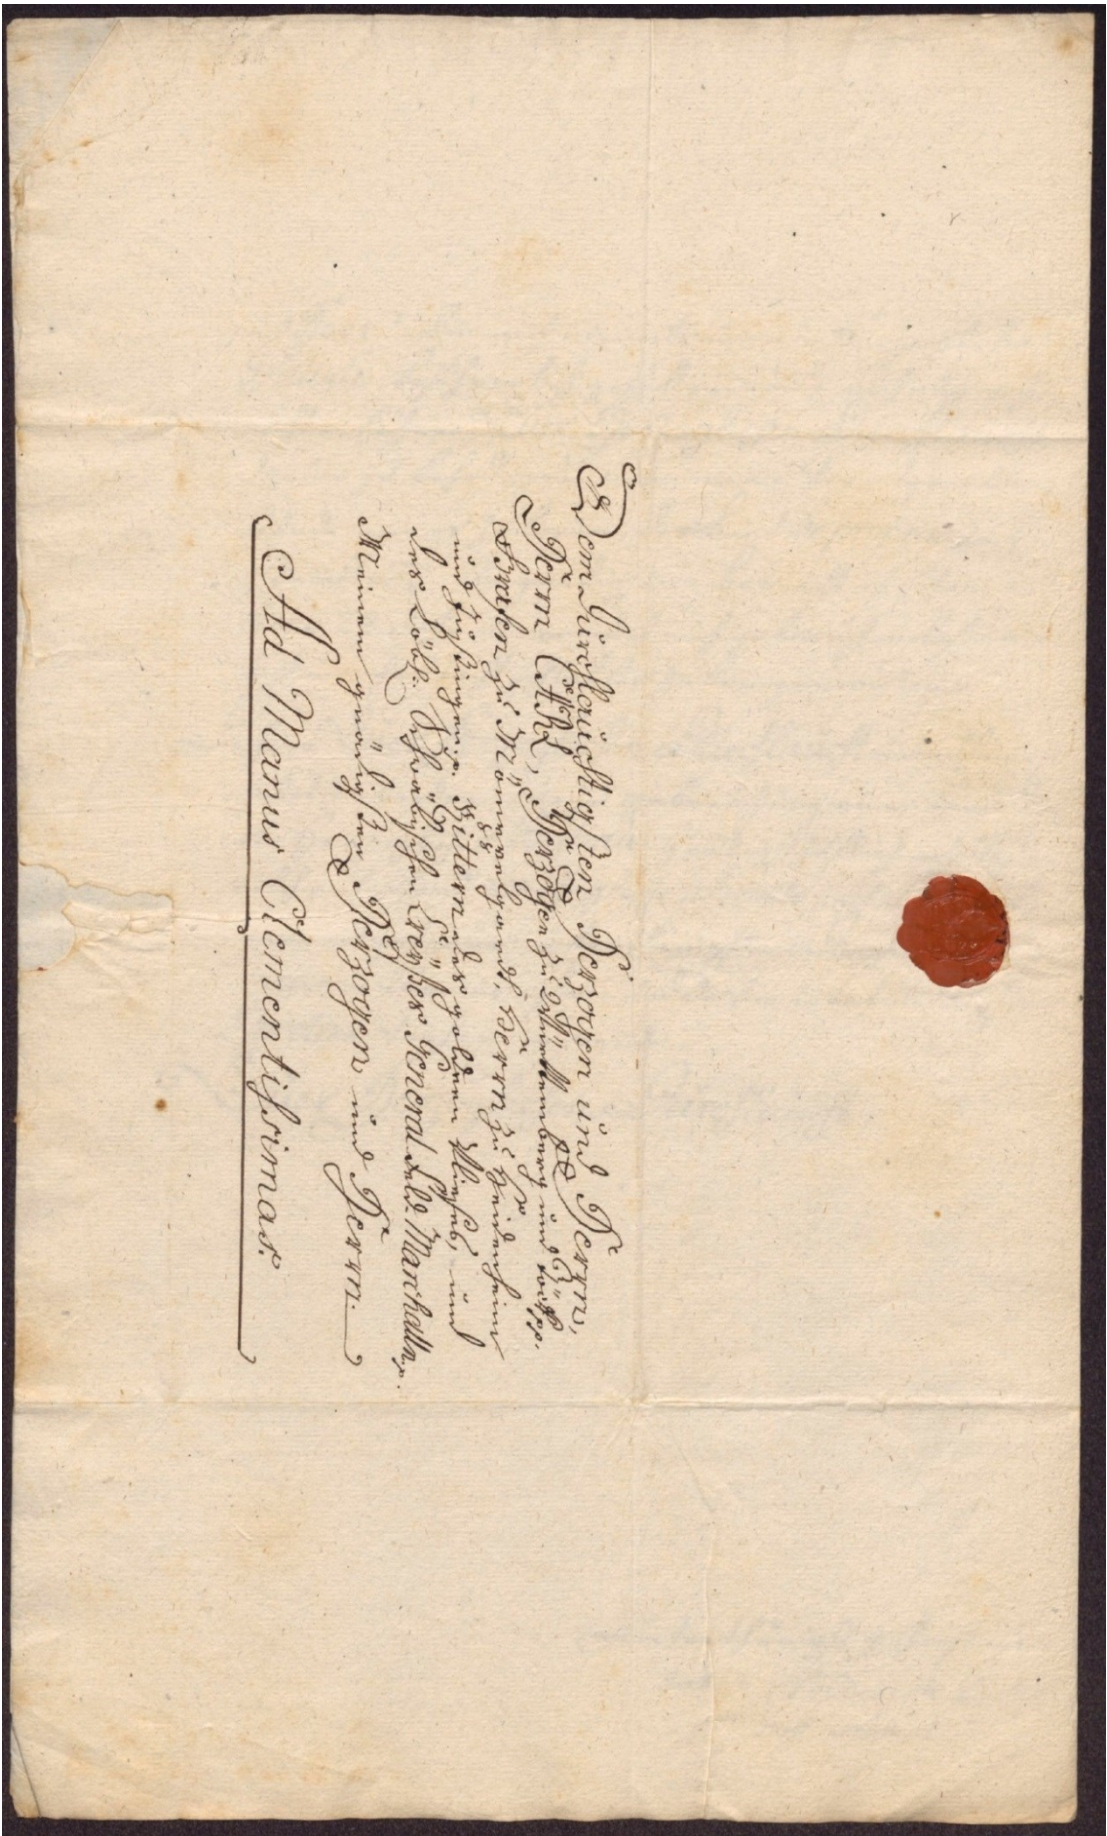 Dem Durchlauchtigsten Herzogen und Herrn,
Herrn CARL, Herzogen zu Württemberg und Töckh pp.
Grafen zu Mömpelgardt, Herrn zu Heidenheim
und Justingen p. Rittern des goldnen Vließes, und
des Löbl. Schwäbischen Creyßes General Feld Marchalln p.
Meinem gnädigsten Herzogen und Herrn.
Ad Manus Clementißimas.